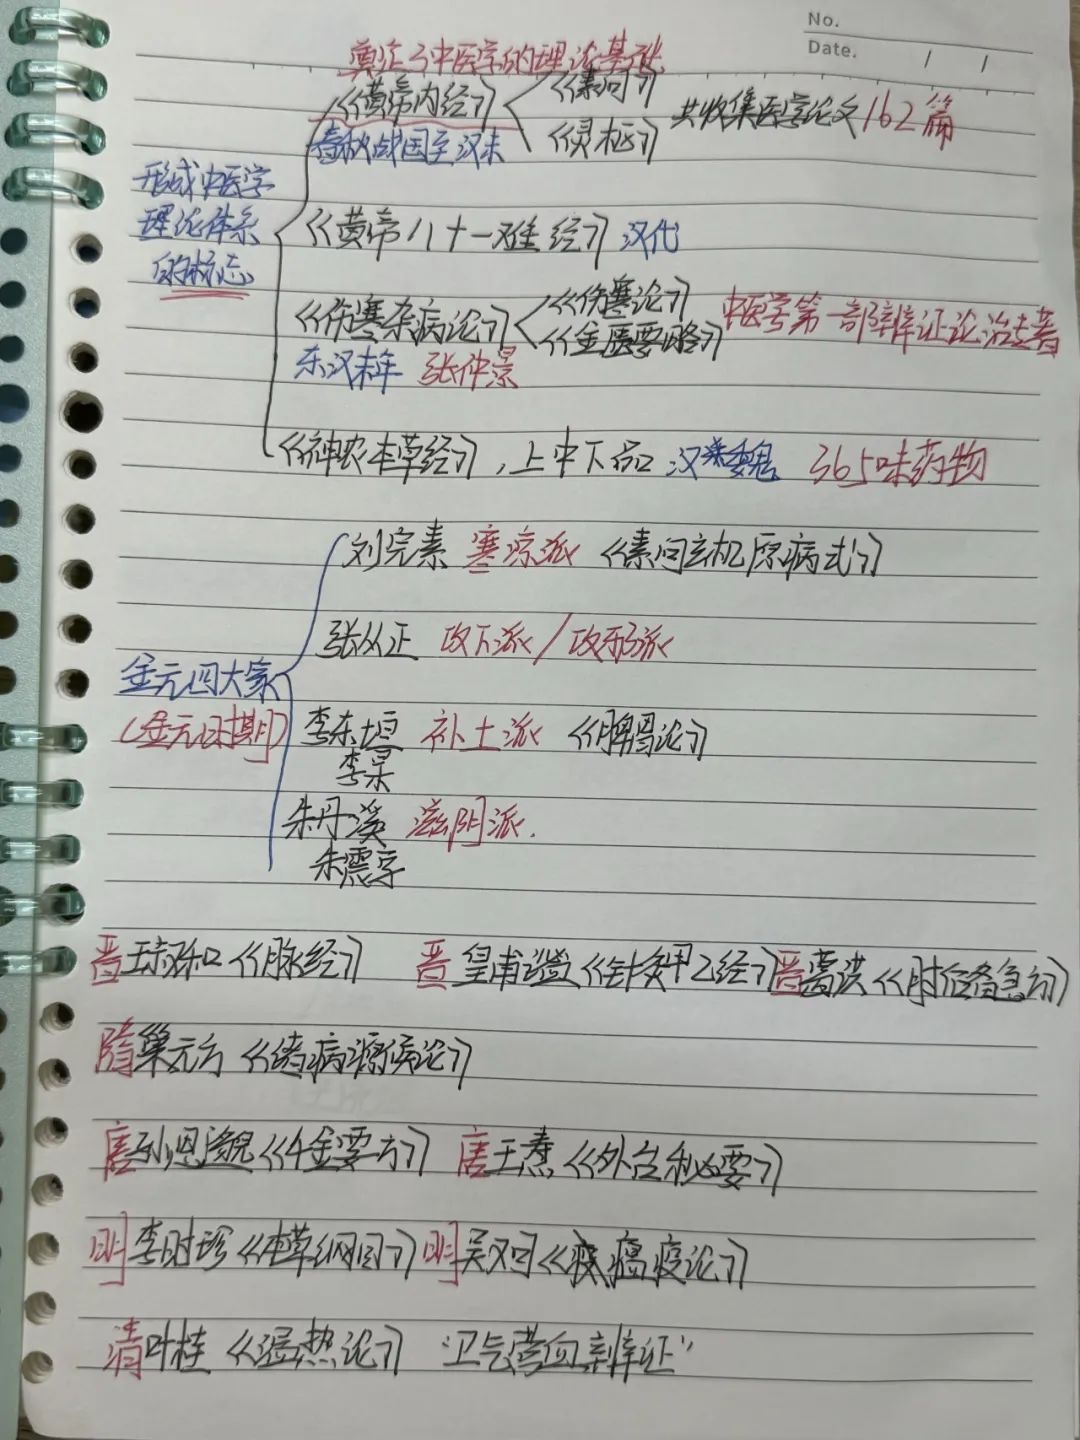 No.
Date.
奠定了中医学的理论基础
《黄帝内经》《素问》
《灵枢》
共收集医学论文162篇
春秋战国至汉末
形成中医学
理论体系
的标志
《黄帝八十一难经》汉代
《伤寒杂病论》《伤寒论》
《金匮要略》
中医学第一部辨证论治专著
东汉末年 张仲景
《神农本草经》,上中下品 汉末魏 365味药物
刘完素 寒凉派 《素问玄机原病式》
张从正 攻下派/攻邪派
金元四大家
(金元时期)
李东垣 补土派 《脾胃论》
李杲
朱丹溪 滋阴派.
朱震亨
晋王叔和《脉经》 晋皇甫谧《针灸甲乙经》晋葛洪《肘后备急方》
隋巢元方《诸病源候论》
唐孙思邈《千金要方》 唐王焘《外台秘要》
明李时珍《本草纲目》明吴又可《瘟疫论》
清叶桂《温热论》"卫气营血辨证"